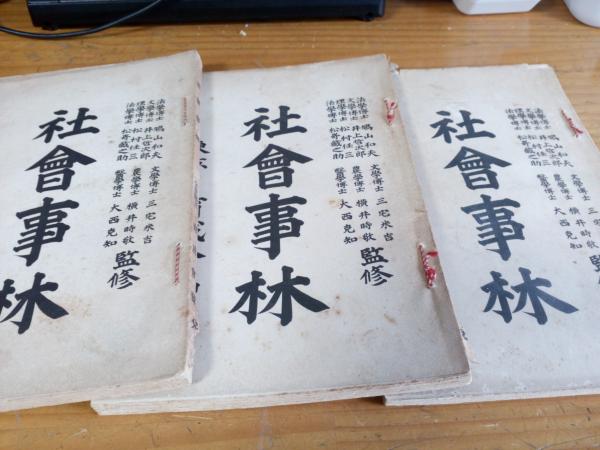 法學博士 鳩山和夫
文學博士 井上哲次郎
理學博士 松村任三
法學博士 松崎蔵之助
文學博士 三宅米吉
農學博士 横井時敬
醫學博士 大西克知
監修
社會事林
法學博士 鳩山和夫
文學博士 井上哲次郎
理學博士 松村任三
法學博士 松崎蔵之助
文學博士 三宅米吉
農學博士 横井時敬
醫學博士 大西克知
監修
社會事林
法學博士 鳩山和夫
文學博士 井上哲次郎
理學博士 松村任三
法學博士 松崎蔵之助
文學博士 三宅米吉
農學博士 横井時敬
醫學博士 大西克知
監修
社會事林